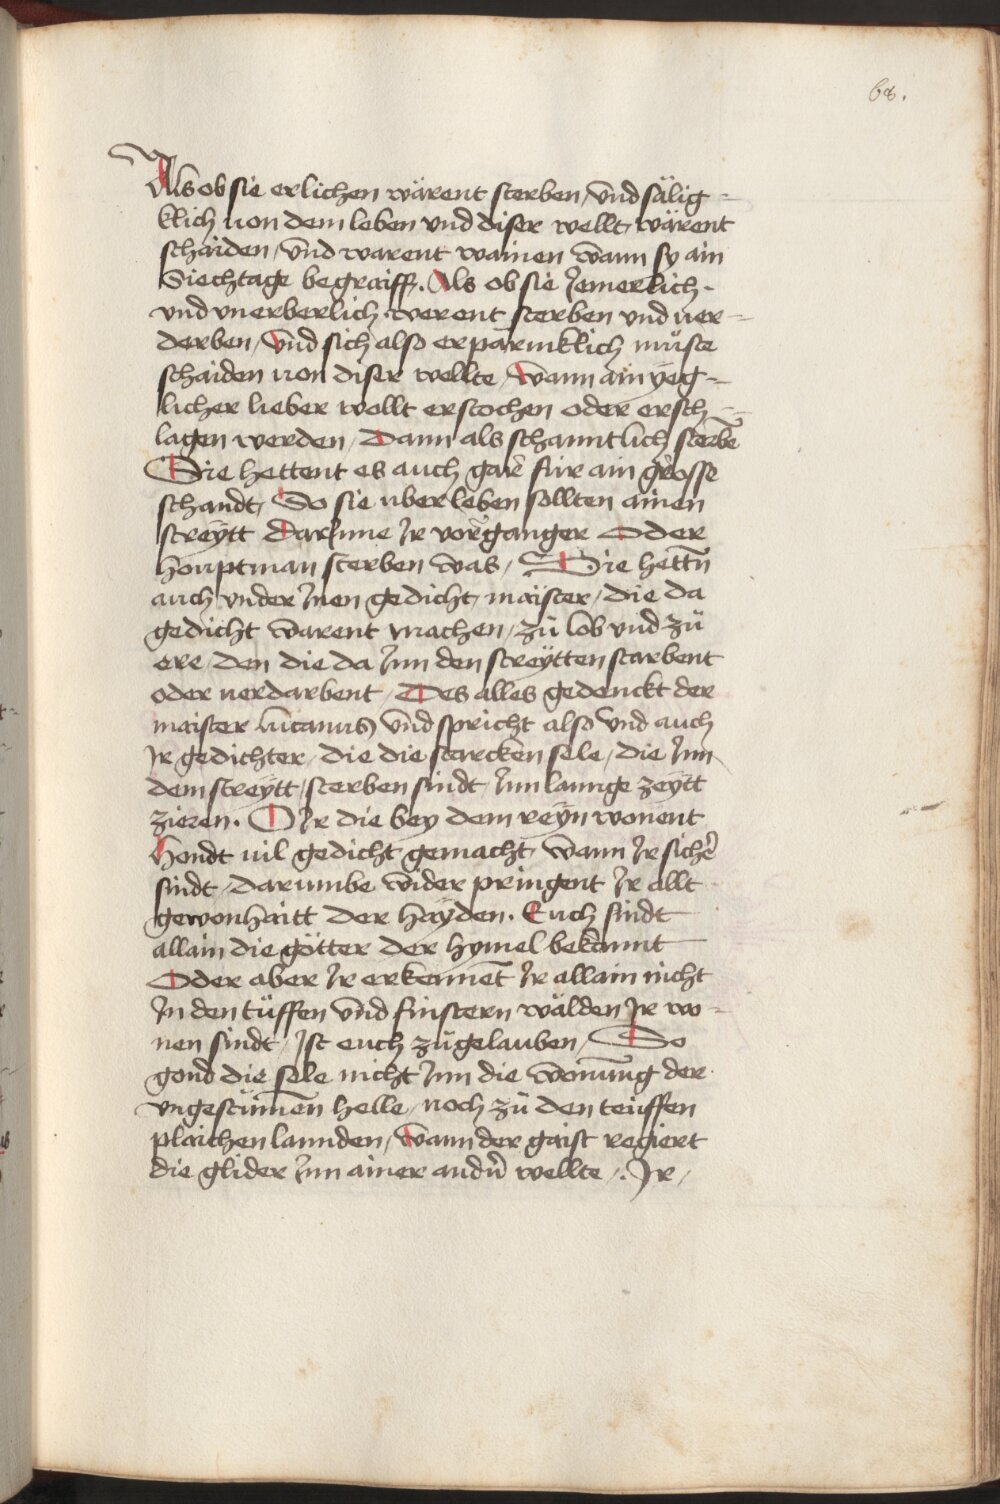 68.
Als ob sie erlichen wärent sterben, vnd sälig-
klich von dem leben vnd diser wellt wärent
schaiden, vnd warent wainen wann sy ain
Siechtage begraiff. Als ob sie Jemerlich.
vnd vnerberlich werent sterben vnd ver-
derben, vnd sich also erpärmklich müste
schaiden von diser wellte, wann ain yeg-
licher lieber wollt erstochen oder ersch-
lagen werden, Dann als schanntlich sterbē
Sie hettent es auch gar für ain grosse
schandt, So sie uberleben sollten ainen
streÿtt DarJnne Jr vorganger Oder
houptman sterben was, Sie hettn̄
auch vnder Jnen gedicht, maister, die da
gedicht warent machen, zů lob vnd zů
ere, den die da Jnn den streÿtten starbent
oder verdarbent, Des alles gedenckt der
maister lucanus vnd spricht also vnd auch
Jr gedichter, die die starcken sele, die Jnn
dem streÿtt, sterben sindt, Jnn lannge zeÿtt
zieren. O Jr die bey dem reÿn wonent
Hondt vil gedicht gemacht, wann Jr sicher
sindt, darumbe wider pringent Jr allt
gewonhaitt der haÿden. Euch sindt
allain die götter der hymel bekannt
Oder aber Jr erkennēt Jr allain nicht
Jn den tüffen vnd finstern wälden Jr wo-
nen sindt, Jst euch zůgelauben, So
gond die sele nicht Jnn die wonūng der
vngestümen helle, noch zů den teuffen
plaichen lannden, wann der gaist regiert
die glider Jnn ainer andn̄ wellte, Jr,